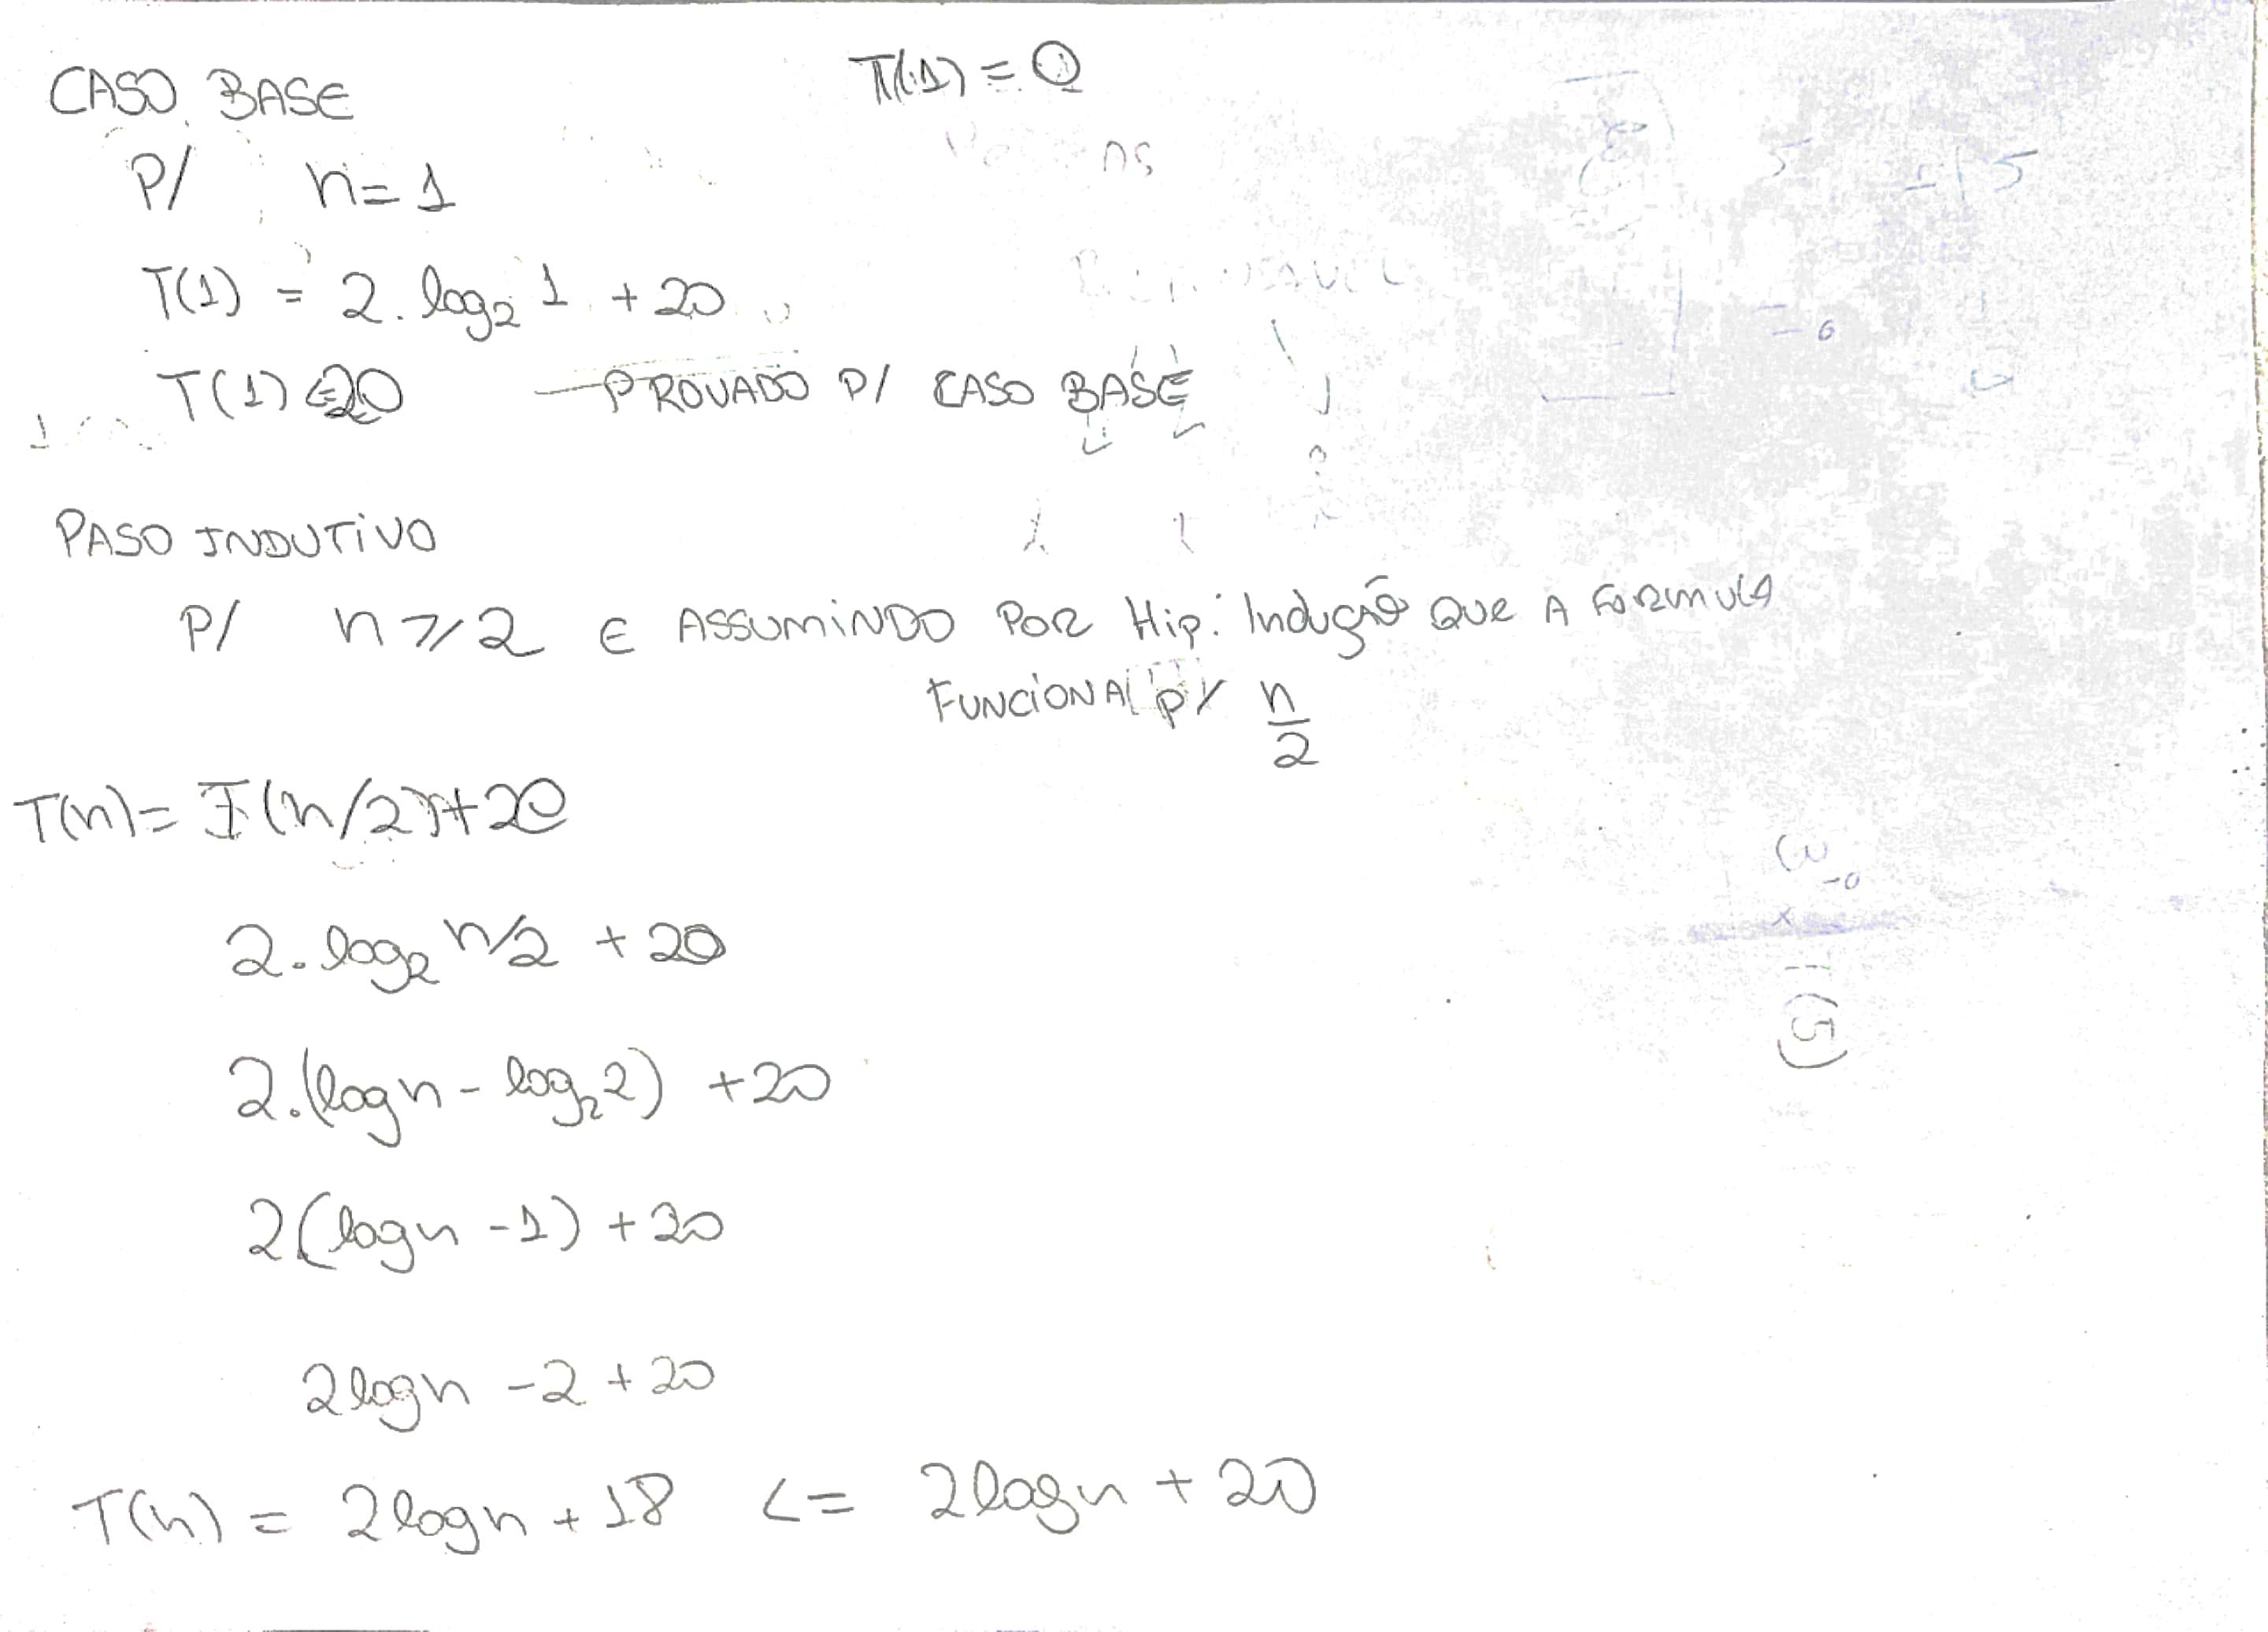 CASO BASE T(1) = 0
P/ n = 1
T(1) = 2. log₂ 1 + 20
T(1) <= 20 PROVADO P/ CASO BASE
PASO INDUTIVO
P/ n >= 2 E ASSUMINDO POR Hip. Indução QUE A FORMULA
FUNCIONA P/ n/2
T(n) = T(n/2) + 20
2. log₂ n/2 + 20
2. (log n - log₂ 2) + 20
2 (log n - 1) + 20
2 log n - 2 + 20
T(n) = 2 log n + 18 <= 2 log n + 20